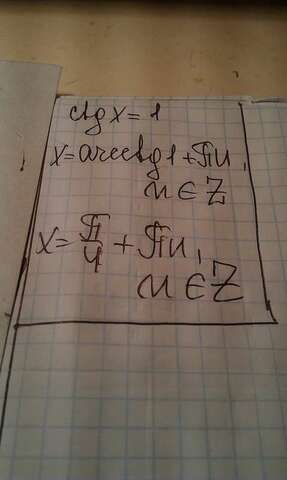 ctg x = 1
x = arcctg 1 + πn,
n ∈ Z
x = π/4 + πn,
n ∈ Z